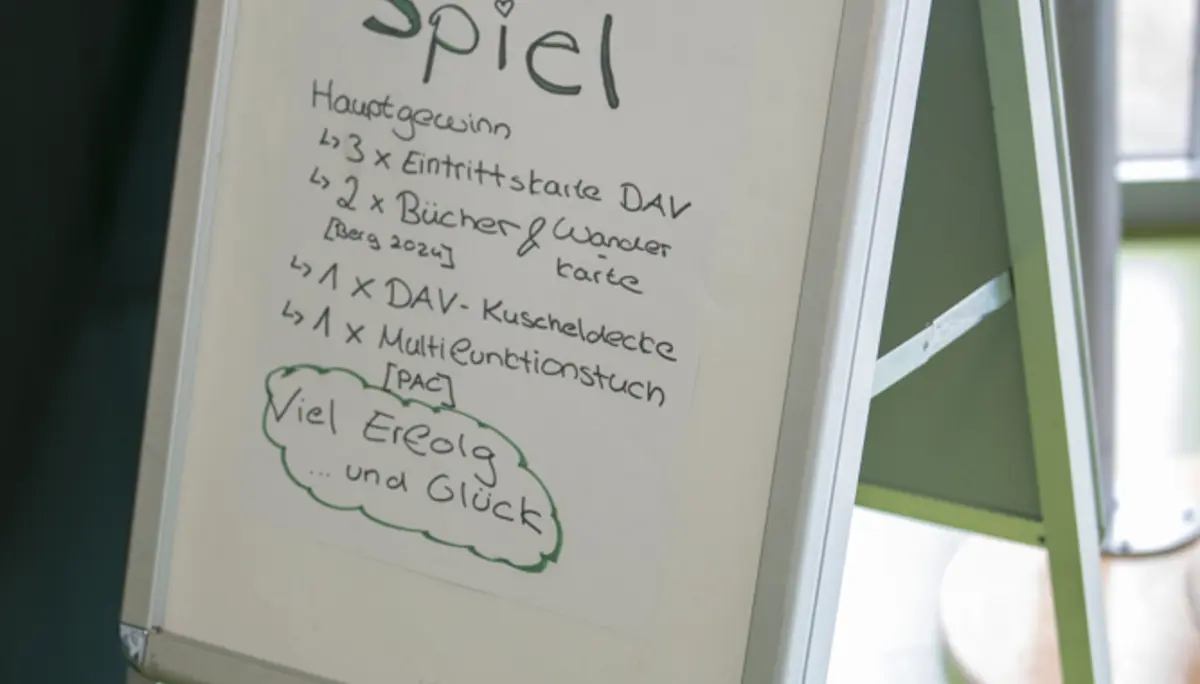 Spiel
Hauptgewinn
↳ 3 x Eintrittskarte DAV
↳ 2 x Bücher & Wander
[Berg 2024] karte
↳ 1 x DAV-Kuscheldecke
↳ 1 x Multifunktionstuch
[PAC]
Viel Erfolg
... und Glück